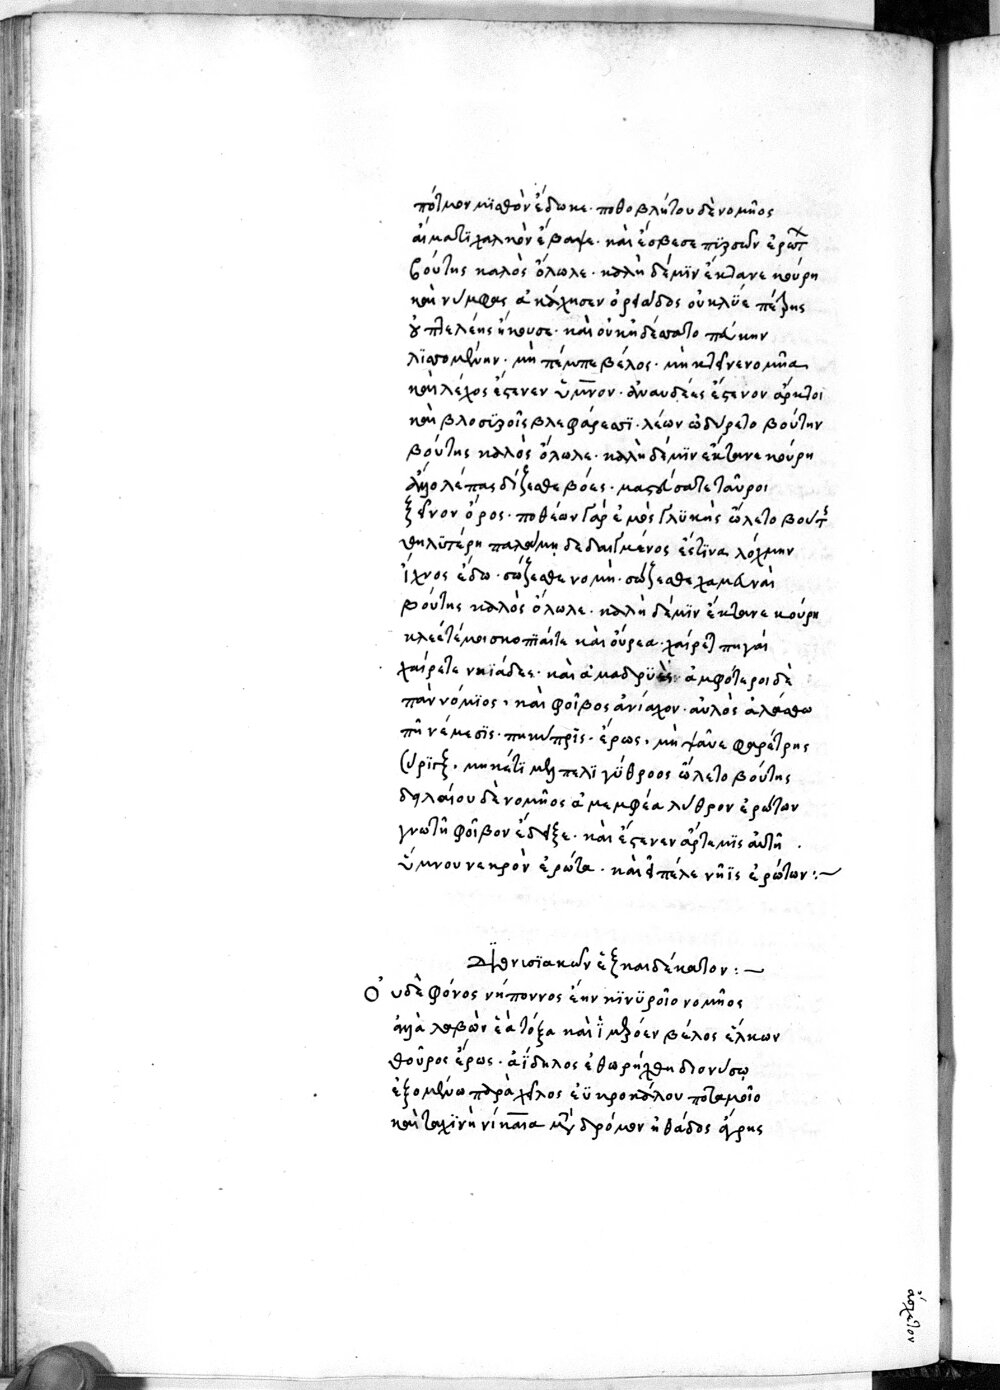 πότμον μισθὸν ἔδωκε· ποθοβλήτου δὲ νομῆος
αἵματι χαλκὸν ἔβαψε· καὶ ἔσβεσε πυρσὸν ἐρώτ
βούτης καλὸς ὄλωλε· καλὴ δέ μιν ἔκτανε κούρη
καὶ νύμφας ἀκάχησεν ὀρειάδος οὐκ λύε πέτρης
οὐ πτελέης ἤκουσε· καὶ οὐκ ἠδέσατο πεύκην
λισσομένην· μὴ πέμπε βέλος· μὴ κτεῖνε νομῆα
καὶ λύκος ἔστενεν ὕμνον· ἀναιδέες ἔστενον ἄρκτοι
καὶ βλοσυροῖς βλεφάρεσσι· λέων ὠδύρετο βούτην
βούτης καλὸς ὄλωλε· καλὴ δέ μιν ἔκτανε κούρη
ἄλλο λέπας δίζεσθε βόες· μαστεύσατε ταῦροι
ξεῖνον ὄρος· ποθέων γὰρ ἐμὸς γλυκὺς ὤλετο βούτης
θηλυτέρῃ παλάμῃ δεδαϊγμένος ἐς τίνα λόχμην
ἴχνος ἄγω· σώζεσθε νομαὶ· σώζεσθε χαμεῦναι
βούτης καλὸς ὄλωλε· καλὴ δέ μιν ἔκτανε κούρη
χαίρετέ μοι σκοπιαί τε καὶ οὔρεα· χαίρετε πηγαὶ
χαίρετε νηϊάδες· καὶ ἀμαδρυάδες· ἀμφότεροι δὲ
πὰν νόμιος· καὶ φοῖβος ἀνίαχον· αὐλὸς ὀλέσθω
πῆ νέμεσις· πῆ κύπρις· ἔρως, μὴ ψαῦε φαρέτρης
σύριγξ, μηκέτι μέλπε λιγύθροος ὤλετο βούτης
δηλαίου δὲ νομῆος ἀμεμφέα λύθρον ἐρώτων
γνωτῇ φοῖβον ἔδειξε· καὶ ἔστενεν ἄρτεμις αὐτὴ
ὕμνου νεκρὸν ἔρωτα· καὶ εἰ πέλε νῆϊς ἐρώτων:~
Διονυσιακῶν ἑξκαιδέκατον:~
Οὐδὲ φόνος νήποινος ἔην κινυροῖο νομῆος
ἀλλὰ λαβὼν ἑὰ τόξα καὶ ἱμερόεν βέλος ἕλκων
θοῦρος ἔρως· ἀΐδηλος ἐθωρήχθη διονύσῳ
ἑζομένῳ παρὰ χεῖλος ἐϋκροκάλου ποταμοῖο
καὶ ταχινὴ νίκαια μετὰ δρόμον ἠθάδος ἄγρης
ἄσχετον